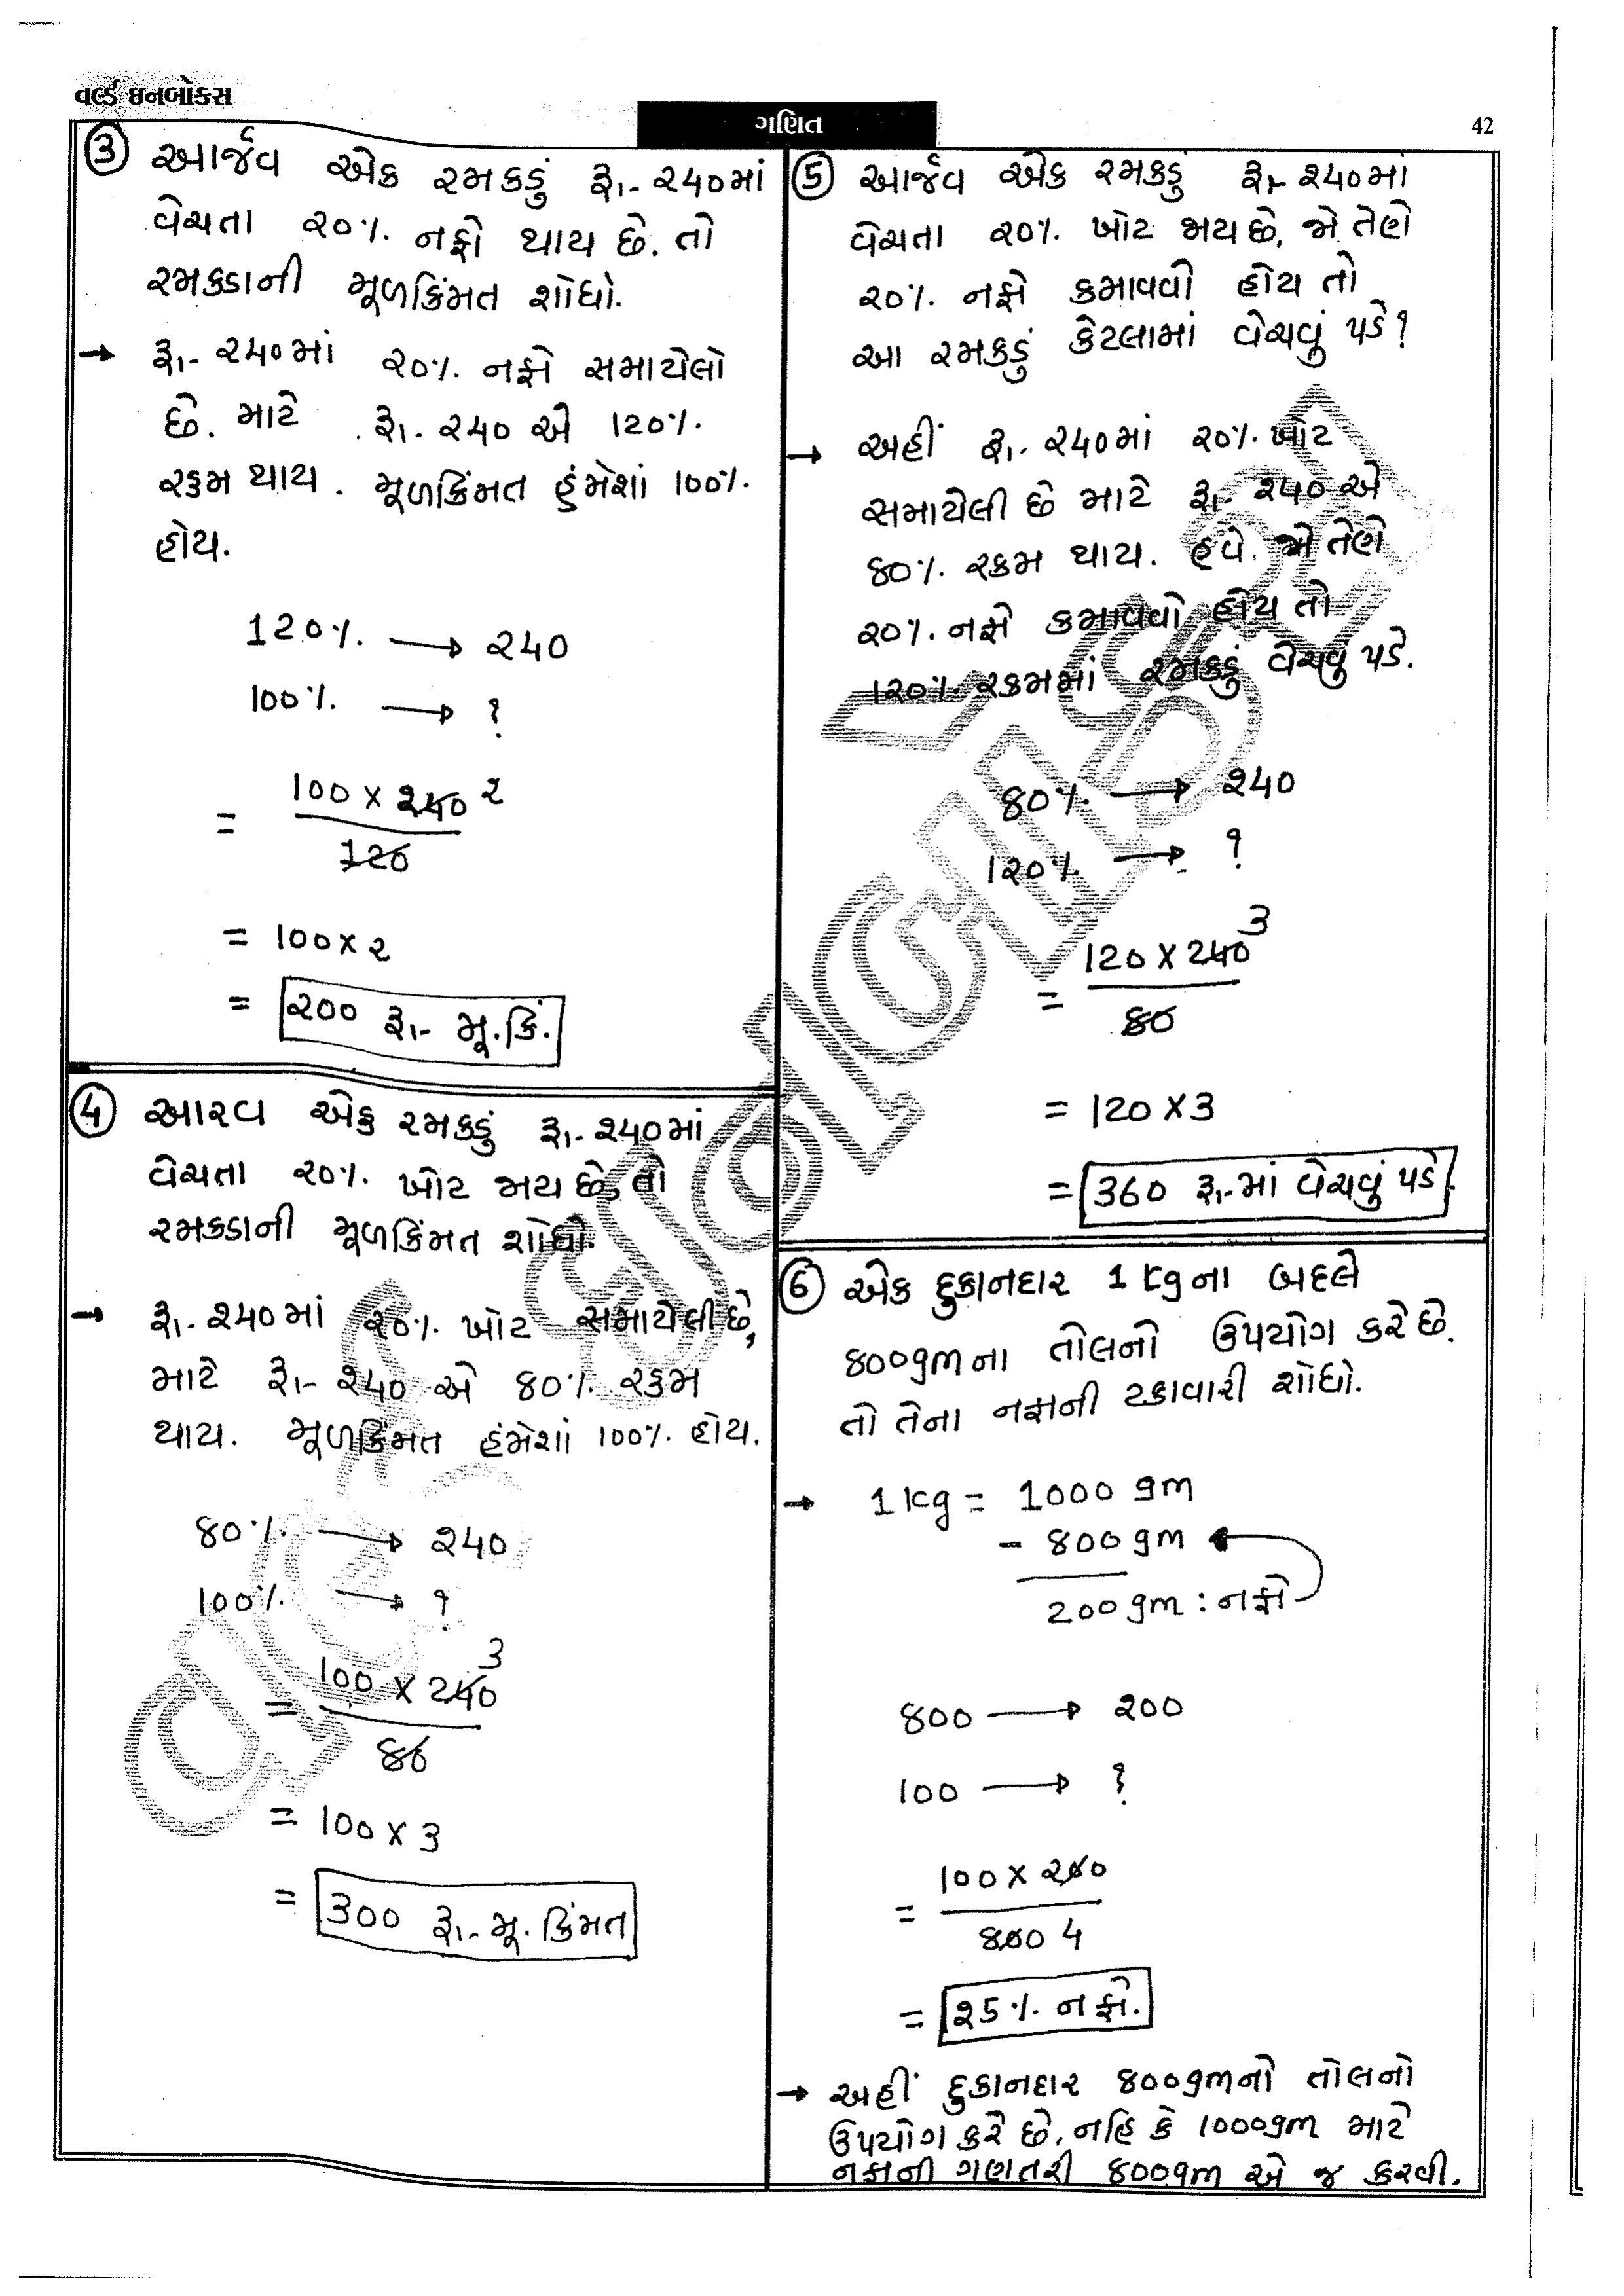 વર્લ્ડ ઇનબોક્સ
ગણિત
42
③ આર્જવ એક રમકડું રૂા.- ૨40માં
વેચતા ૨0% નફો થાય છે. તો
રમકડાની મૂળકિંમત શોધો.
→ રૂા.- ૨40માં ૨0% નફો સમાયેલો
છે. માટે રૂા.- ૨40 એ 120%
રકમ થાય. મૂળકિંમત હંમેશાં 100%
હોય.
120% → ૨40
100% → ?
= 100 x ૨40 ૨
120
= 100 x ૨
= ૨00 રૂા.- મૂ.કિં.
④ આરવ એક રમકડું રૂા.- ૨40માં
વેચતા ૨0% ખોટ જાય છે, તો
રમકડાની મૂળકિંમત શોધો.
→ રૂા.- ૨40માં ૨0% ખોટ સમાયેલી છે,
માટે રૂા.- ૨40 એ 80% રકમ
થાય. મૂળકિંમત હંમેશાં 100% હોય.
80% → ૨40
100% → ?
= 100 x 240 3
80
= 100 x 3
= 300 રૂા.- મૂ. કિંમત
⑤ આર્જવ એક રમકડું રૂા.- ૨40માં
વેચતા ૨0% ખોટ જાય છે, જો તેણે
૨0% નફો કમાવવો હોય તો
આ રમકડું કેટલામાં વેચવું પડે?
→ અહીં રૂા.- ૨40માં ૨0% ખોટ
સમાયેલી છે માટે રૂા.- ૨40 એ
80% રકમ થાય. હવે, જો તેણે
૨0% નફો કમાવવો હોય તો
1૨0% રકમમાં રમકડું વેચવું પડે.
80% → ૨40
1૨0% → ?
= 120 x 240 3
80
= 120 x 3
= 360 રૂા.-માં વેચવું પડે.
⑥ એક દુકાનદાર 1 kg ના બદલે
800gm ના તોલનો ઉપયોગ કરે છે.
તો તેના નફાની ટકાવારી શોધો.
→ 1 kg = 1000 gm
- 800 gm
200 gm : નફો
800 → ૨00
100 → ?
= 100 x ૨00
800 4
= ૨5% નફો.
→ અહીં દુકાનદાર 800gmનો તોલનો
ઉપયોગ કરે છે, નહિ કે 1000gm માટે
નફાની ગણતરી 800gm એ જ કરવી.